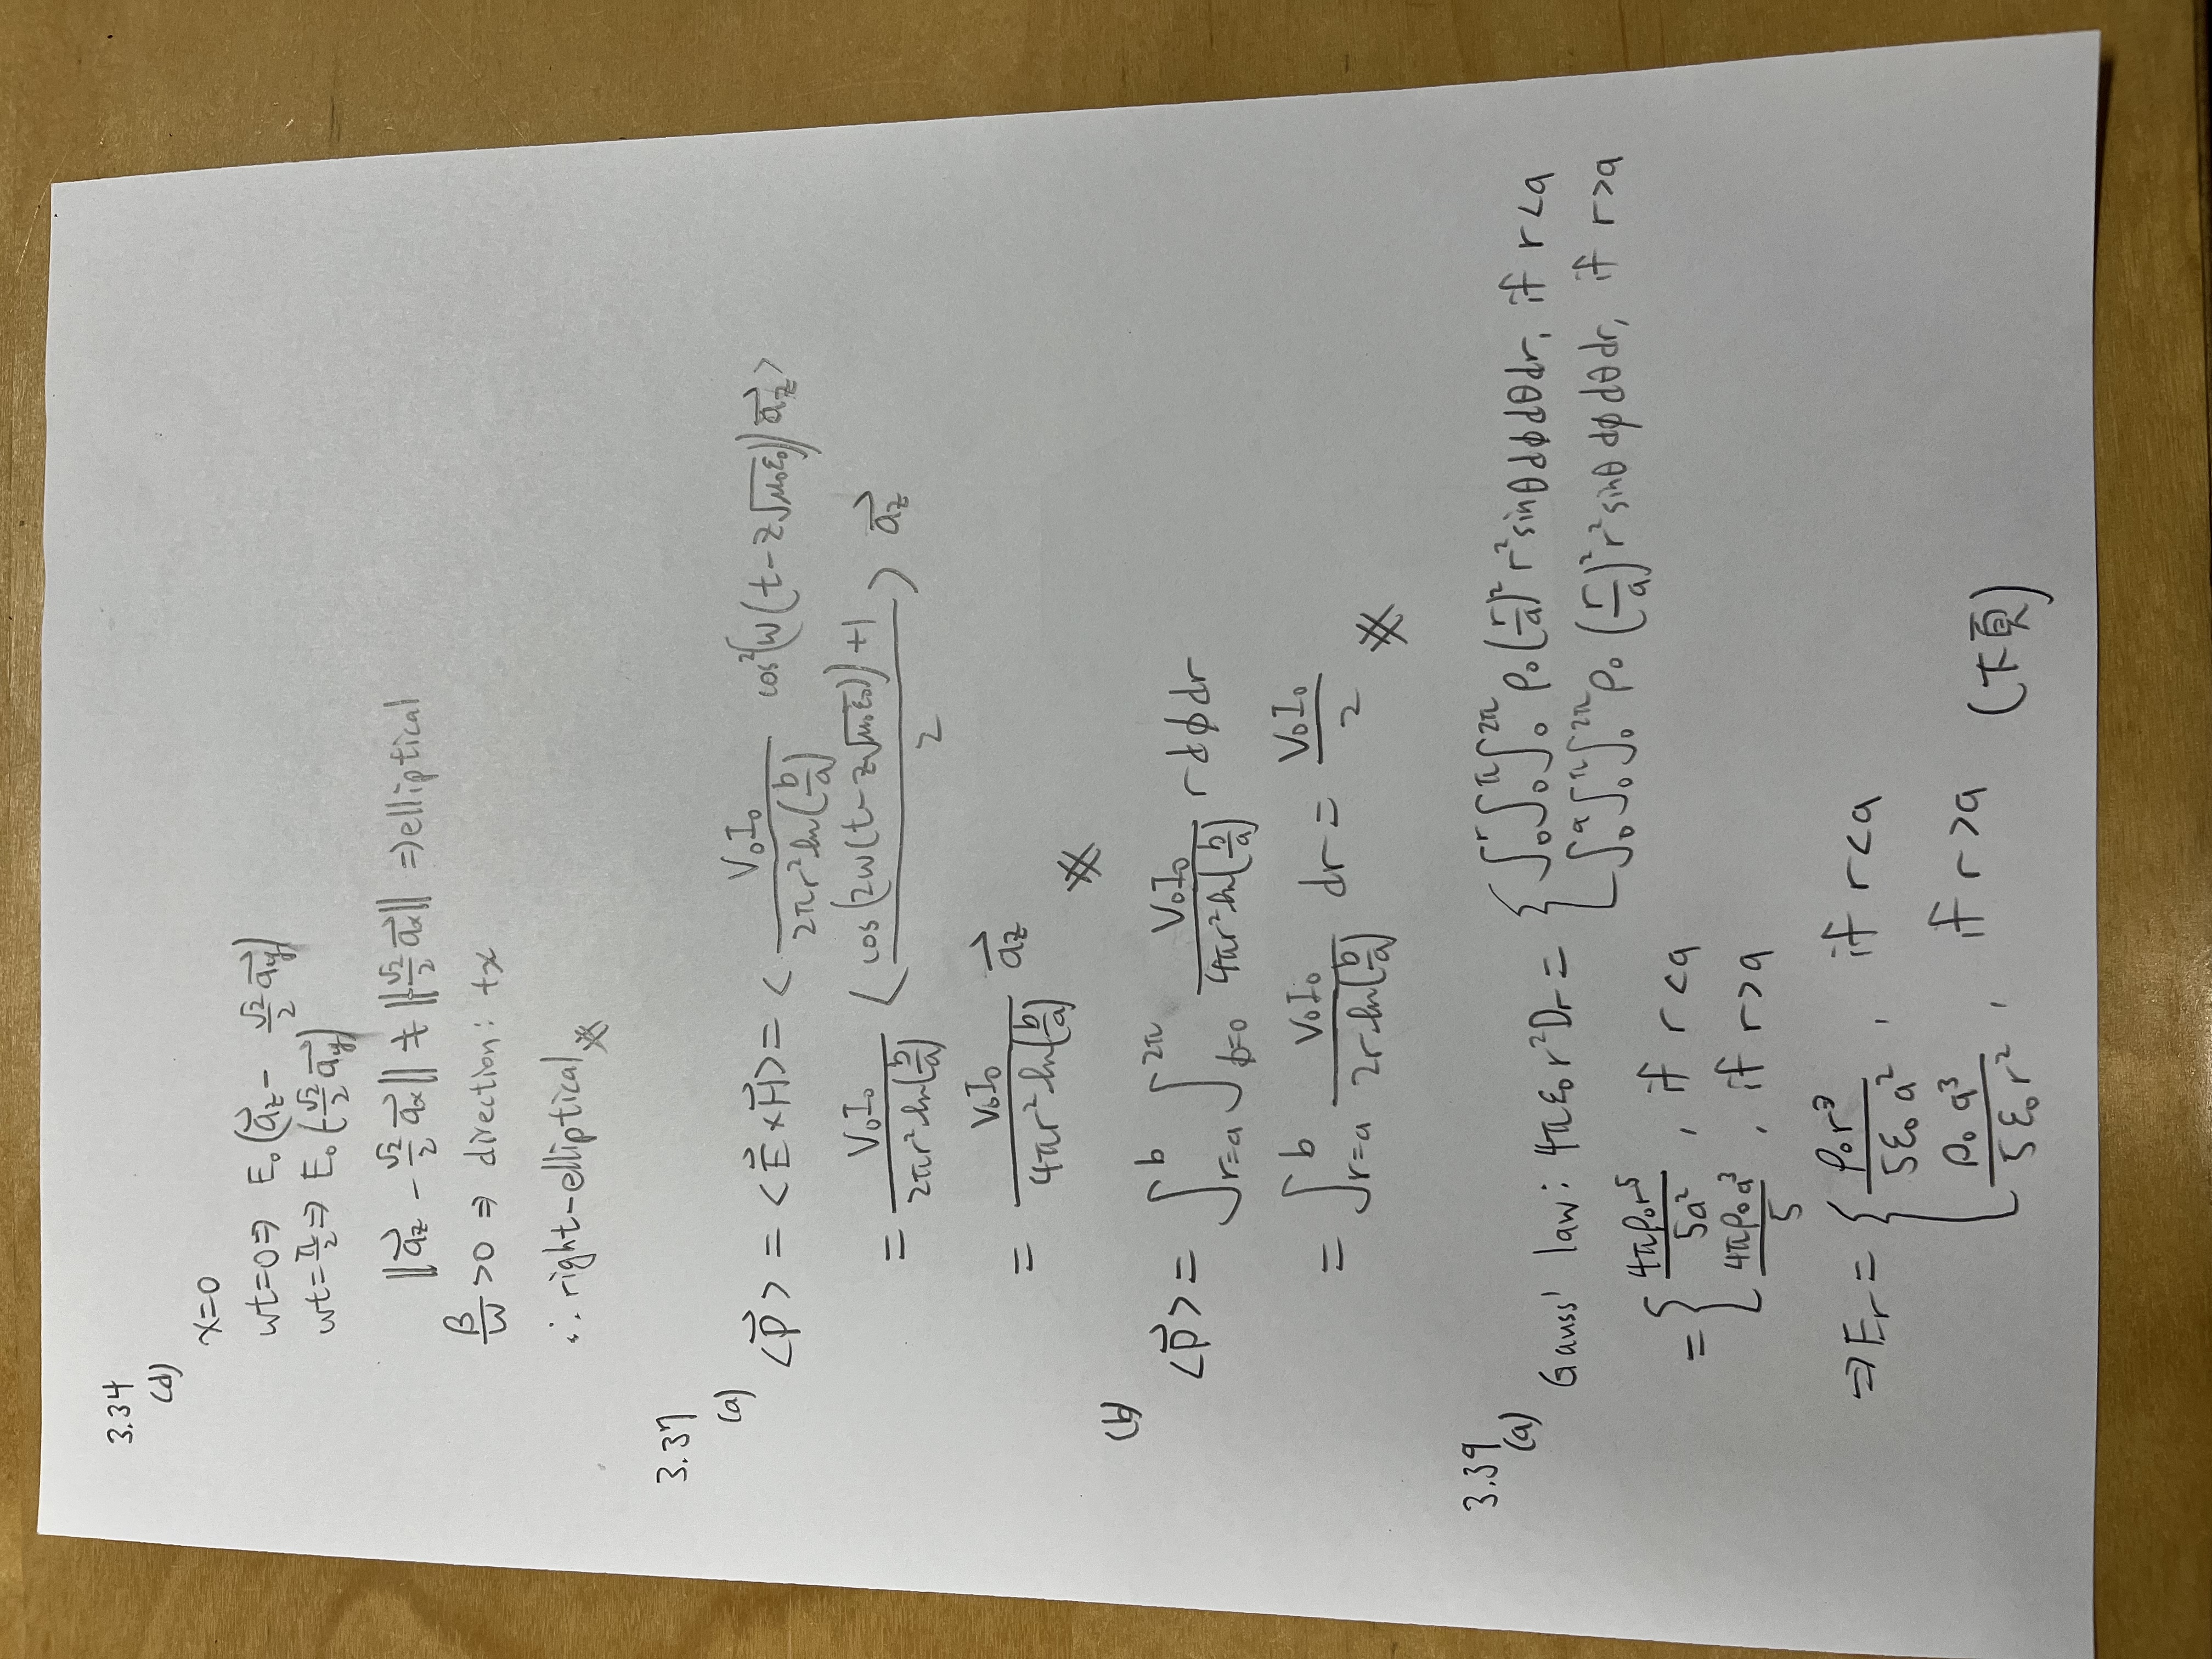 3.34
(d)
x=0
wt=0⇒ E₀(a⃗_z − √2/2 a⃗_y)
wt=π/2⇒ E₀(−√2/2 a⃗_y)
‖a⃗_z − √2/2 a⃗_x‖ ≠ ‖−√2/2 a⃗_x‖ ⇒elliptical
β/w >0 ⇒ direction: +x
∴ right-elliptical
3.37
(a)
<P⃗> = <E⃗×H⃗> = < V₀I₀/(2πr² ln(b/a)) cos²(w(t−z√(μ₀ε₀))) a⃗_z>
= V₀I₀/(2πr² ln(b/a)) < (cos(2w(t−z√(μ₀ε₀)))+1)/2 > a⃗_z
= V₀I₀/(4πr² ln(b/a)) a⃗_z
(b)
<P⃗> = ∫_{r=a}^{b} ∫_{ϕ=0}^{2π} V₀I₀/(4πr² ln(b/a)) r dϕ dr
= ∫_{r=a}^{b} V₀I₀/(2r ln(b/a)) dr = V₀I₀/2
3.39
(a)
Gauss' law: 4πε₀r²D_r = { ∫₀^r ∫₀^π ∫₀^{2π} ρ₀(r/a)² r² sinθ dϕ dθ dr, if r<a
∫₀^a ∫₀^π ∫₀^{2π} ρ₀(r/a)² r² sinθ dϕ dθ dr, if r>a
= { 4πρ₀r⁵/5a², if r<a
4πρ₀a³/5, if r>a
⇒E_r = { ρ₀r³/5ε₀a², if r<a
ρ₀a³/5ε₀r², if r>a (下頁)